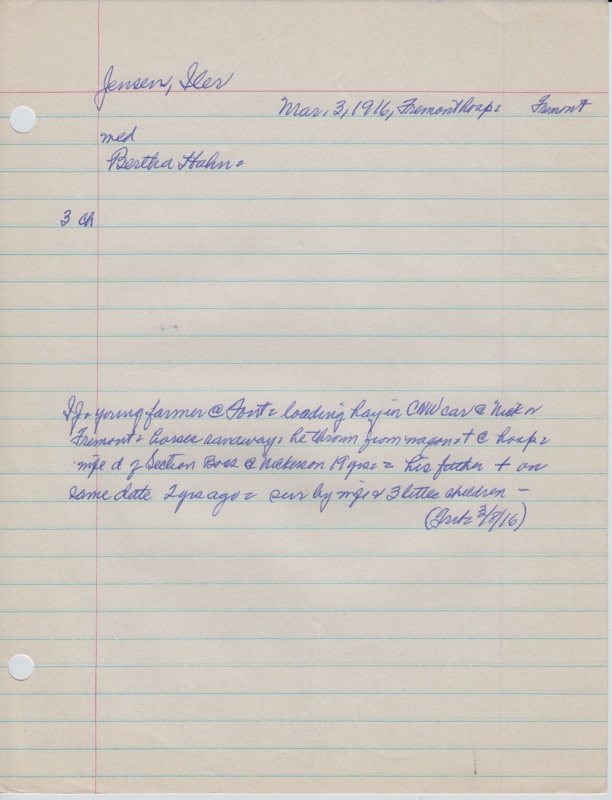 Jensen, Iler
Mar. 3, 1916, Fremont hosp= Fremont
med
Bertha Hahn=
3 ch
IJ= young farmer @ Font= loading hay in CNW car @ Nick n
Fremont= horses runaway= he thrown from wagon= † @ hosp=
wife d of Section Boss @ Nickerson 19 yrs= = his father † on
same date 2 yrs ago = sur by wife & 3 little children –
(Trib 3/8/16)